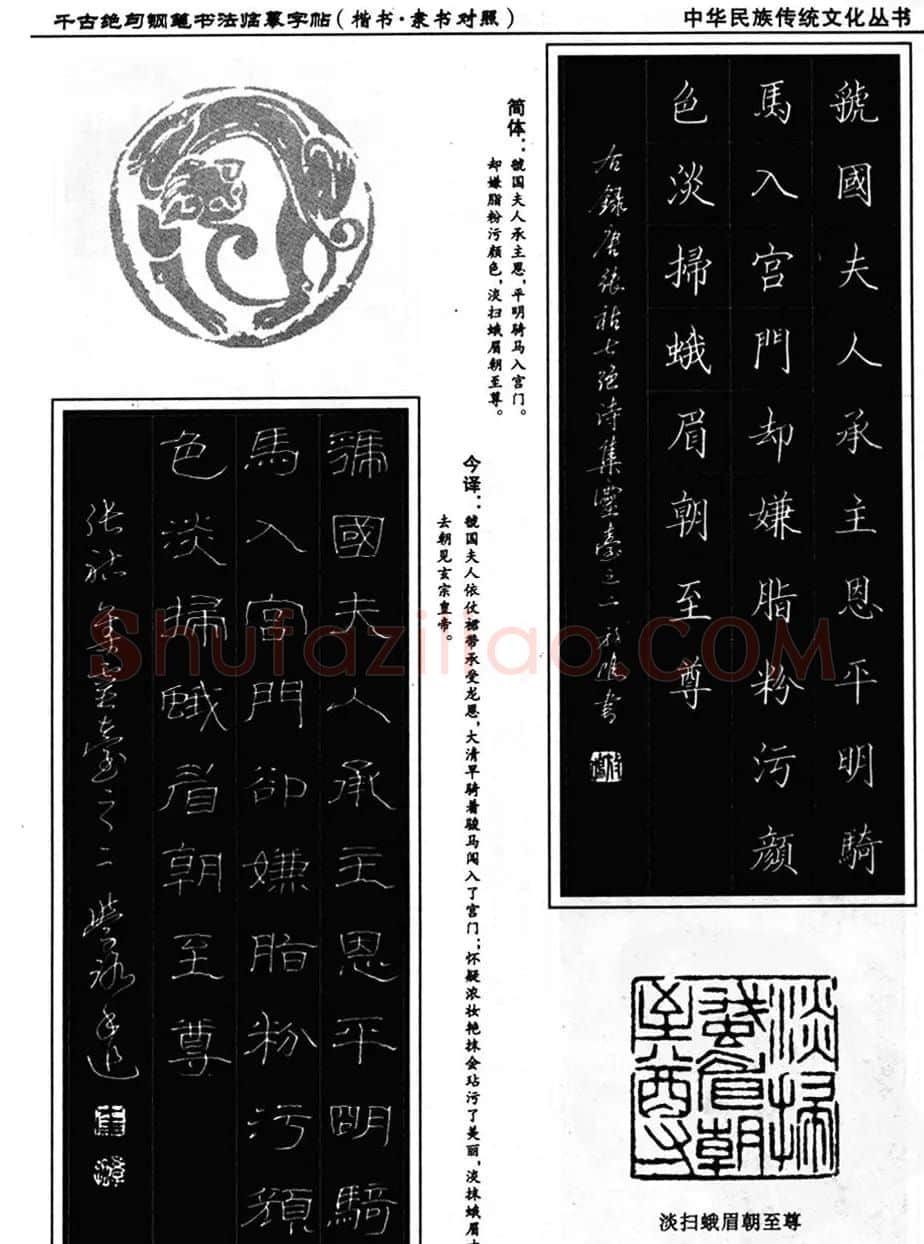 千古绝句钢笔书法临摹字帖(楷书·隶书对照)
中华民族传统文化丛书
虢國夫人承主恩平明騎
馬入宫門却嫌脂粉污顔
色淡掃蛾眉朝至尊
右錄唐張祜七絶詩集靈臺之二
简体：虢国夫人承主恩，平明骑马入宫门。
却嫌脂粉污颜色，淡扫蛾眉朝至尊。
今译：虢国夫人依仗裙带承受龙恩，大清早骑着骏马闯入了宫门；怀疑浓妆艳抹会玷污了美丽，淡抹蛾眉才
去朝见玄宗皇帝。
虢國夫人承主恩平明騎
馬入宫門卻嫌脂粉污顔
色淡掃蛾眉朝至尊
张祜集靈臺之二
淡掃
蛾眉朝
至尊
淡扫蛾眉朝至尊
Shufaziliao.COM